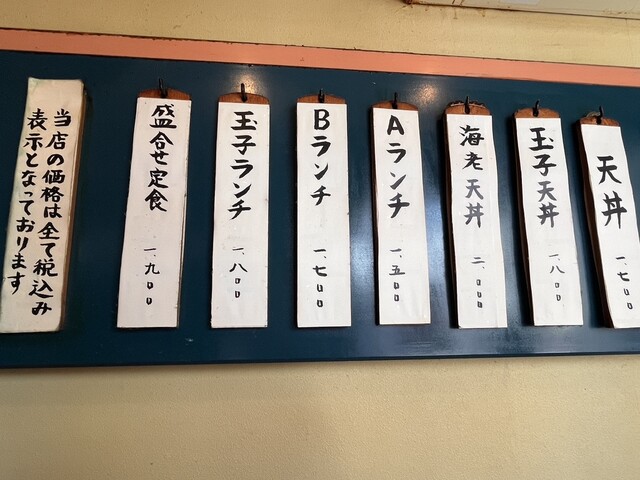 天丼 一、七〇〇
玉子天丼 一、八〇〇
海老天丼 二、〇〇〇
Aランチ 一、五〇〇
Bランチ 一、七〇〇
玉子ランチ 一、八〇〇
盛合せ定食 一、九〇〇
当店の価格は全て税込み
表示となっております